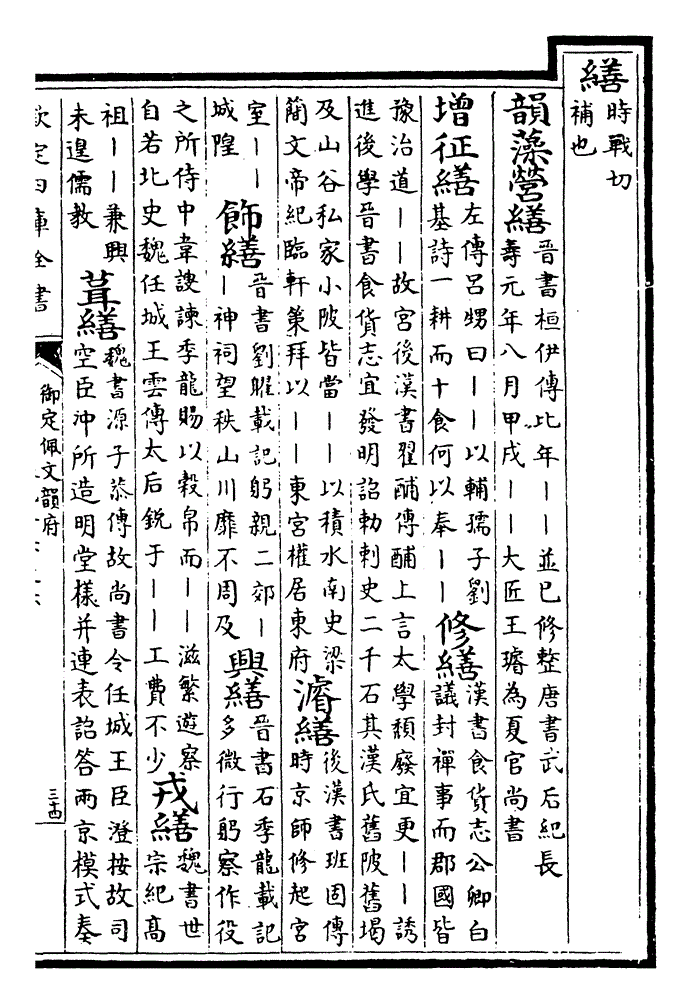 繕 時戰切
補也
韻藻營繕 晉書桓伊傳比年——並已修整唐書武后紀長
壽元年八月甲戌——大匠王璿為夏官尚書
增征繕 左傳呂甥曰——以輔孺子劉
基詩一耕而十食何以奉——
修繕 漢書食貨志公卿白
議封禪事而郡國皆
豫治道——故宮後漢書翟酺傳酺上言太學頽廢宜更——誘
進後學晉書食貨志宜發明詔勅刺史二千石其漢氏舊陂舊堨
及山谷私家小陂皆當——以積水南史梁
簡文帝紀臨軒策拜以——東宮權居東府
濬繕 後漢書班固傳
時京師修起宮
室——
城隍
飾繕 晉書劉曜載記躬親二郊—
—神祠望秩山川靡不周及
興繕 晉書石季龍載記
多微行躬察作役
之所侍中韋謏諫季龍賜以穀帛而——滋繁遊察
自若北史魏任城王雲傳太后銳于——工費不少
戎繕 魏書世
宗紀高
祖——兼興
未遑儒教
葺繕 魏書源子恭傳故尚書令任城王臣澄按故司
空臣沖所造明堂樣并連表詔答兩京模式奏
欽定四庫全書
御定佩文韻府